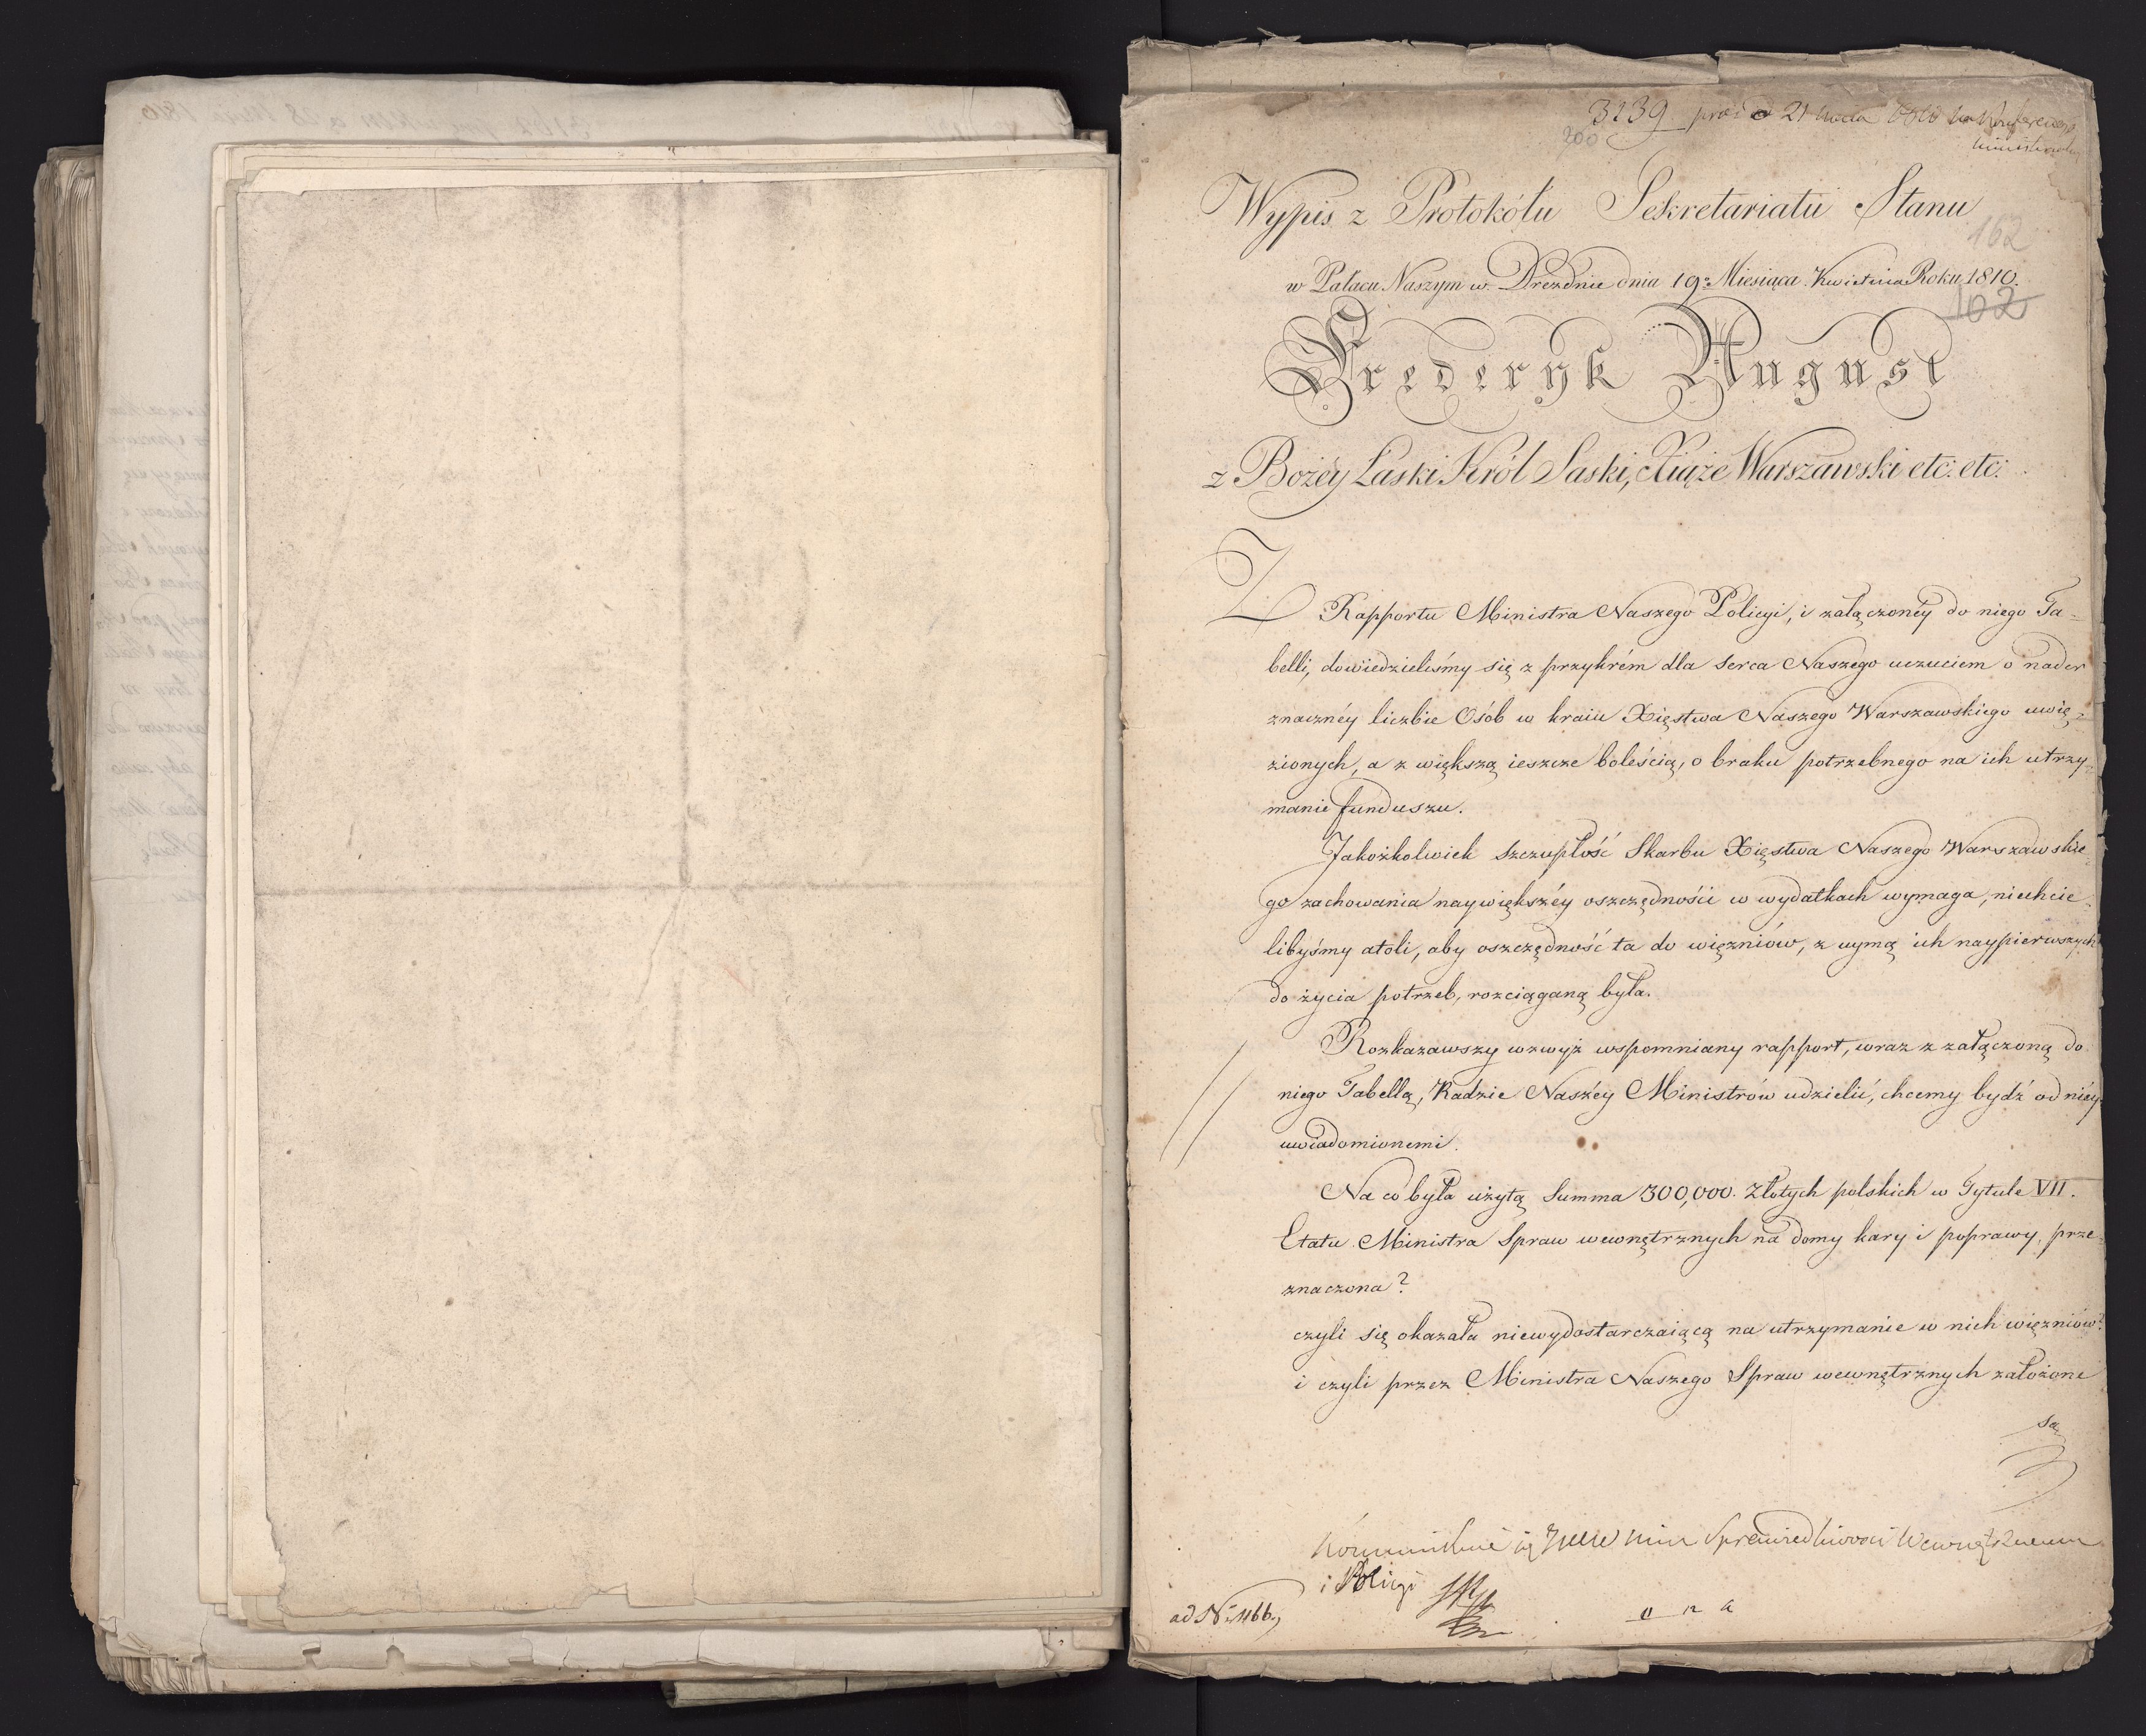 3239
200
Wypis z Protokółu Sekretariatu Stanu
162
w Pałacu Naszym w Dreznie dnia 19º Miesiąca Kwietnia Roku 1810.
102
Frederyk August
z Bożéy Łaski Król Saski, Xiąże Warszawski etc: etc:
Z Rapportu Ministra Naszego Policyi, i załączonéy do niego Ta=
belli, dowiedzieliśmy się z przykrém dla serca Naszego uczuciem o nader
znacznéy liczbie Osób w kraiu Xięstwa Naszego Warszawskiego uwię=
zionych, a z większą ieszcze boleścią, o braku potrzebnego na ich utrzy=
manie funduszu.
Jakożkolwiek szczupłość Skarbu Xięstwa Naszego Warszawskie=
go zachowania naywiększéy oszczędności w wydatkach wymaga, niechcie=
libyśmy atoli, aby oszczędność ta do więzniów, z uymą ich naypierwszych
do życia potrzeb, rozciąganą była.
Rozkazawszy wzwyż wspomniany rapport, wraz z załączoną do
niego Tabellą, Radzie Naszéy Ministrów udzielić, chcemy bydź od niéy
uwiadomionemi.
Na co była użytą Summa 300,000. Złotych polskich w Tytule VII.
Etatu Ministra Spraw wewnętrznych na domy kary i poprawy prze=
znaczona?
czyli się okazała niewydostarczaiącą na utrzymanie w nich więzniów?
i czyli przez Ministra Naszego Spraw wewnętrznych założone
są
Sprawiedliwosci
i Policyi
ad Nº 1166.